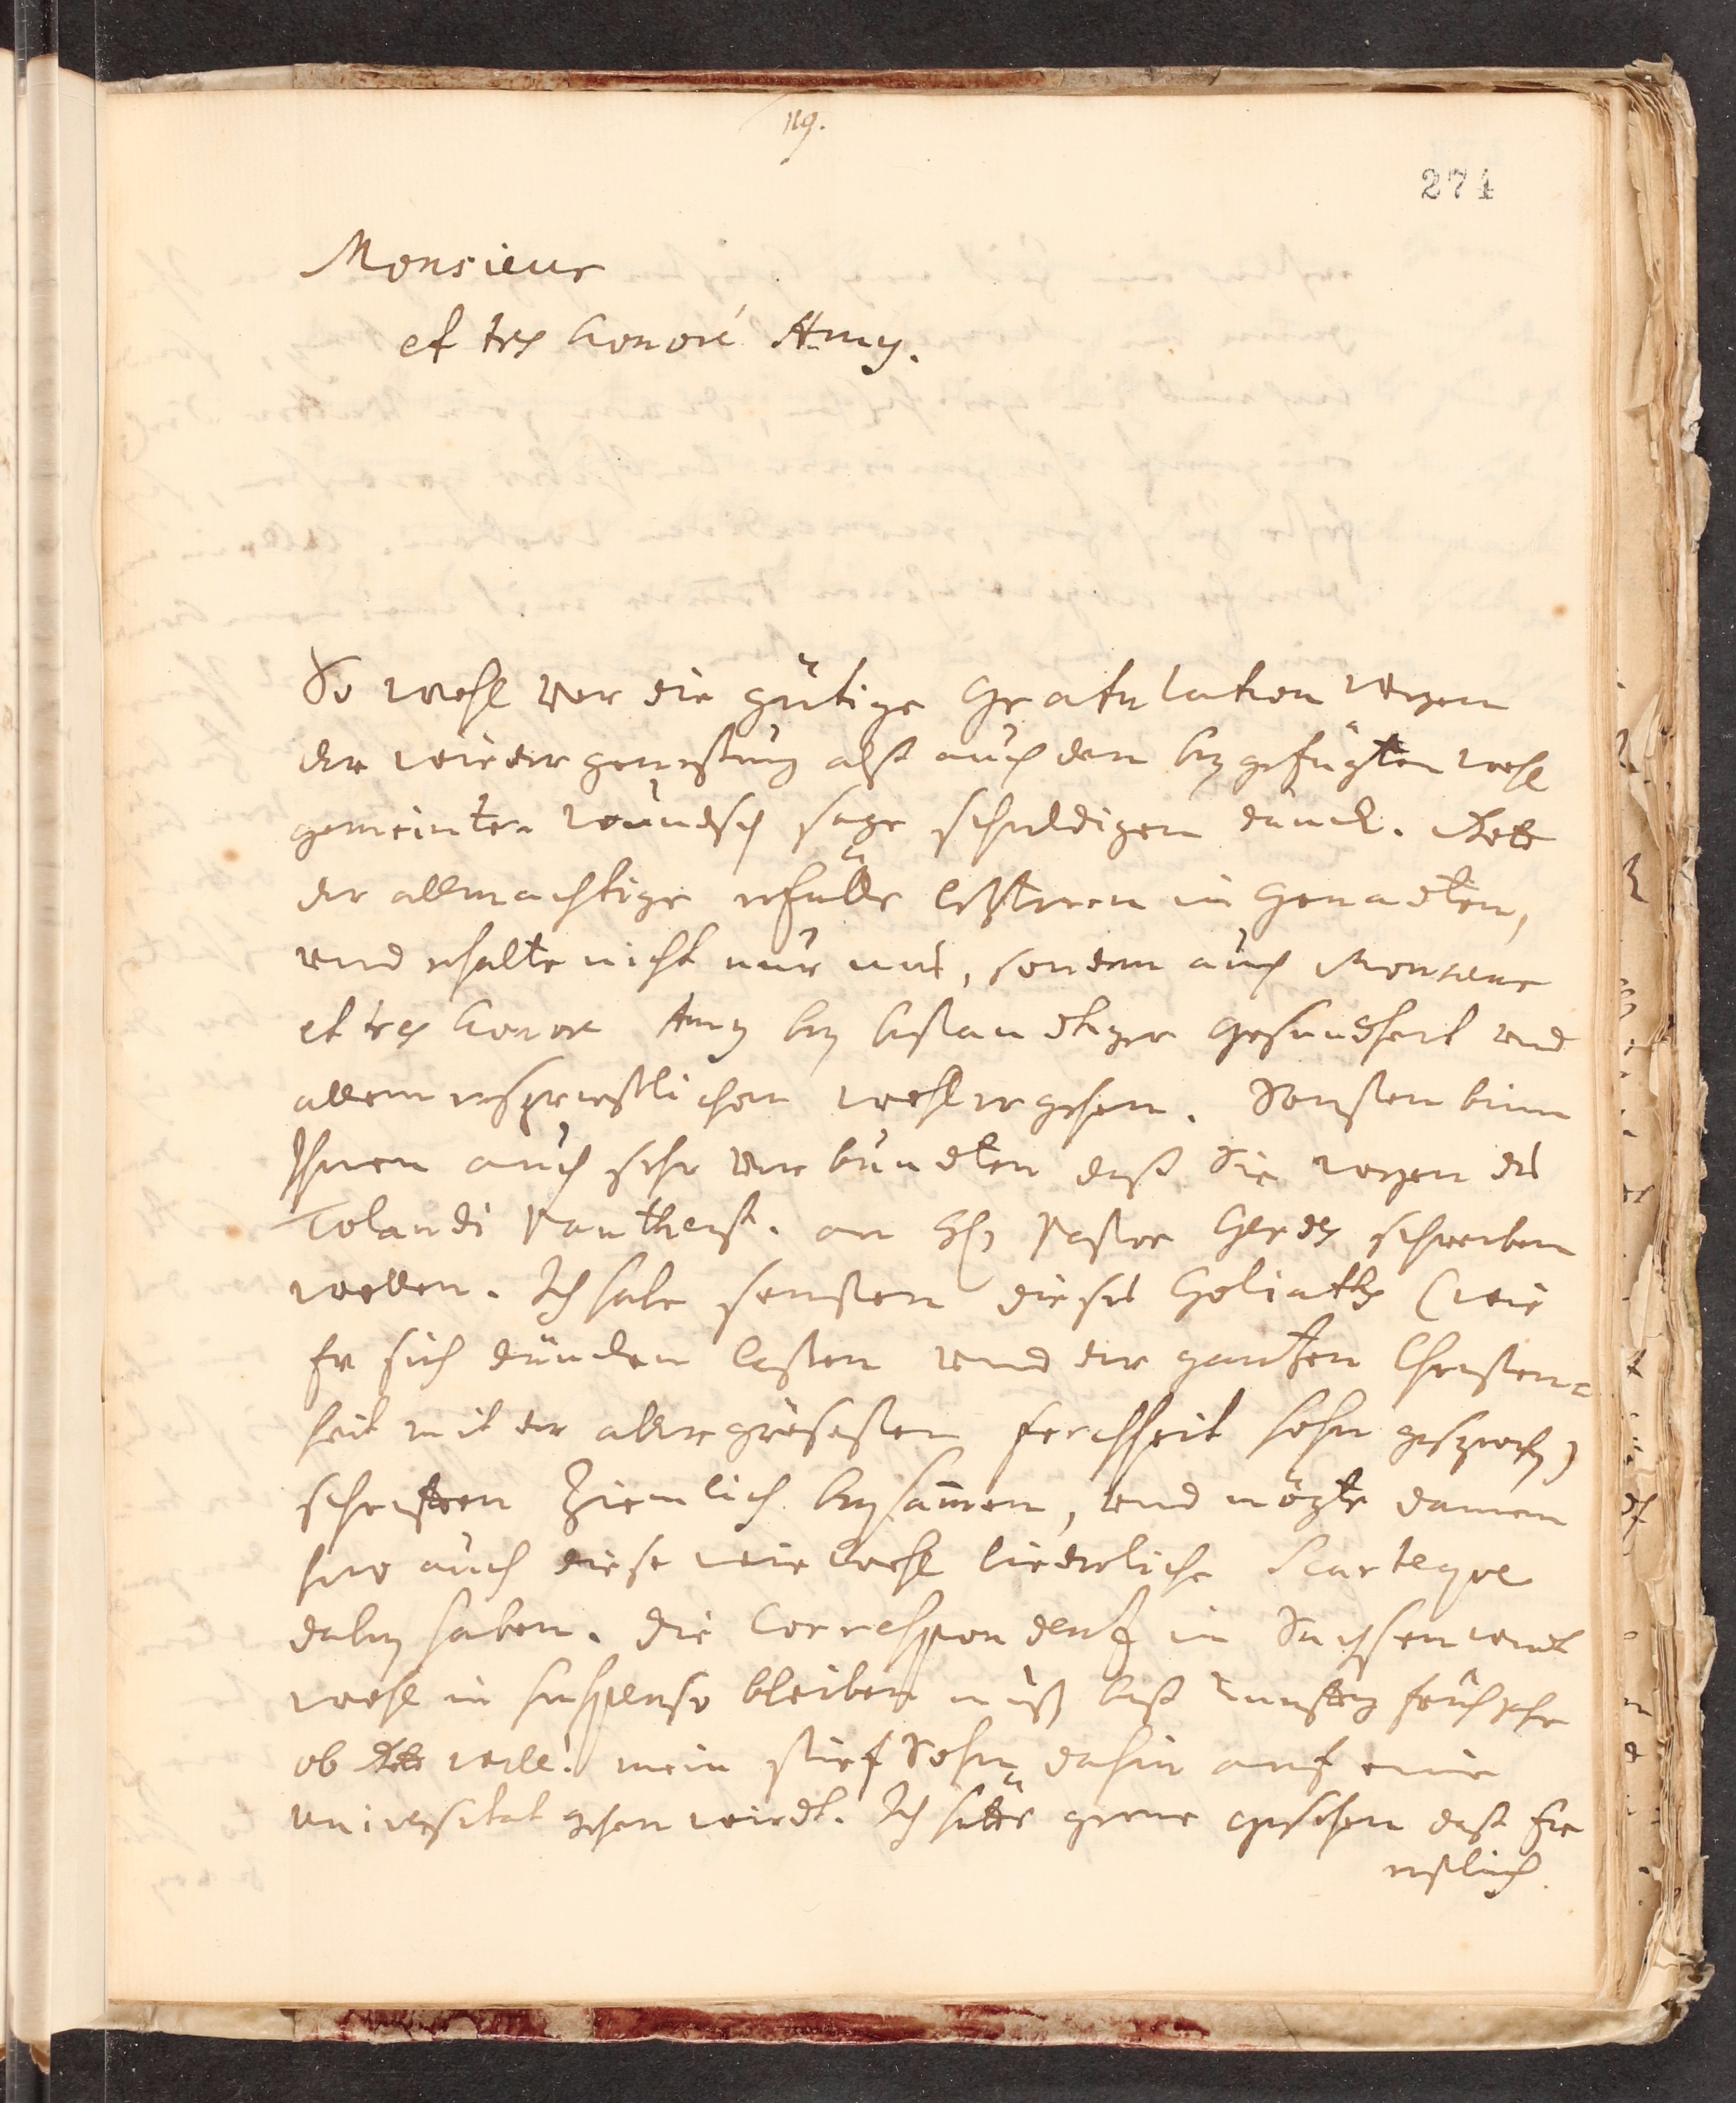 119.
274
Monsieur
et tres honoré Amy.
So wohl vor die gütige Gratulation wegen
der wiedergeneßung alß auch den beygefügten wohl
gemeinten wundsch sage schuldigen danck. Gott
der allmachtige erfülle letzteren in Genadten,
und erhalte nicht nur unß, sondern auch Monsieur
et tres honore Amy bey bestandtiger Gesundtheit und
allem ersprießlichen wohlergehen. Sonsten binn
Ihnen auch sehr verbundten daß Sie wegen des
Tolandi Pantheist. an Hℓ Pastor Gerdes schreiben
wollen. Ich habe sonsten dieses Goliaths (wie
Er sich düncken laßen und der gantzen Christen-
heit mit der allergrösesten frechheit hohn gesprochen)
schriften Ziemlich beysamen, und mögte dannen
hero auch diese wie wohl liederliche Scarteque
dabey haben. Die Correspondentz in Sachsen
wohl in suspenso bleiben muß biß künfftig frühjahr
ob Gott will! mein stief Sohn dahin auf eine
Universitat gehen wirdt. Ich hätte gerne gesehen daß Er
erstlich